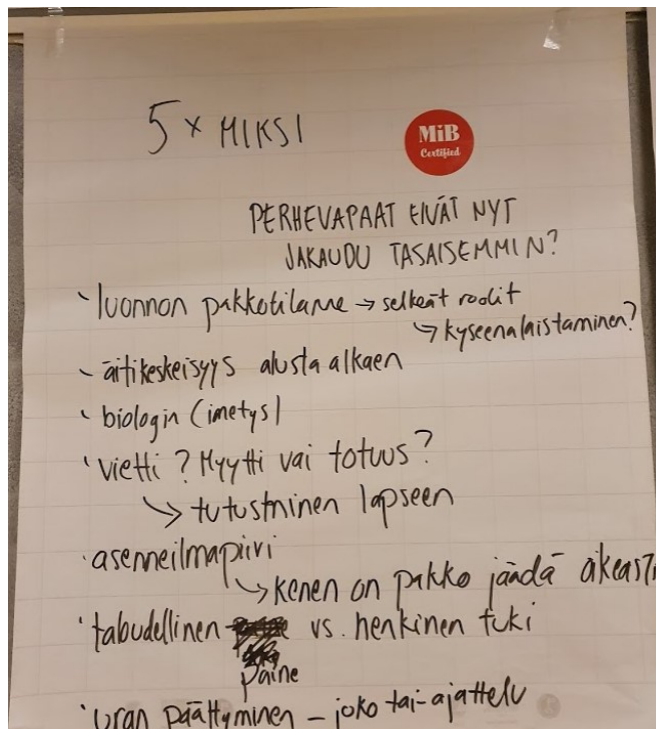 5 x MIKSI
MiB
Certified
PERHEVAPAAT EIVÄT NYT
JAKAUDU TASAISEMMIN?
- luonnon pakkotilanne → selkeät roolit
↳ kyseenalaistaminen?
- äitikeskeisyys alusta alkaen
- biologia (imetys)
- vietti? Myytti vai totuus?
↳ tutustminen lapseen
- asenneilmapiiri
↳ kenen on pakko jäädä
- vs. henkinen tuki
paine
- uran päättyminen – joko tai-ajattelu